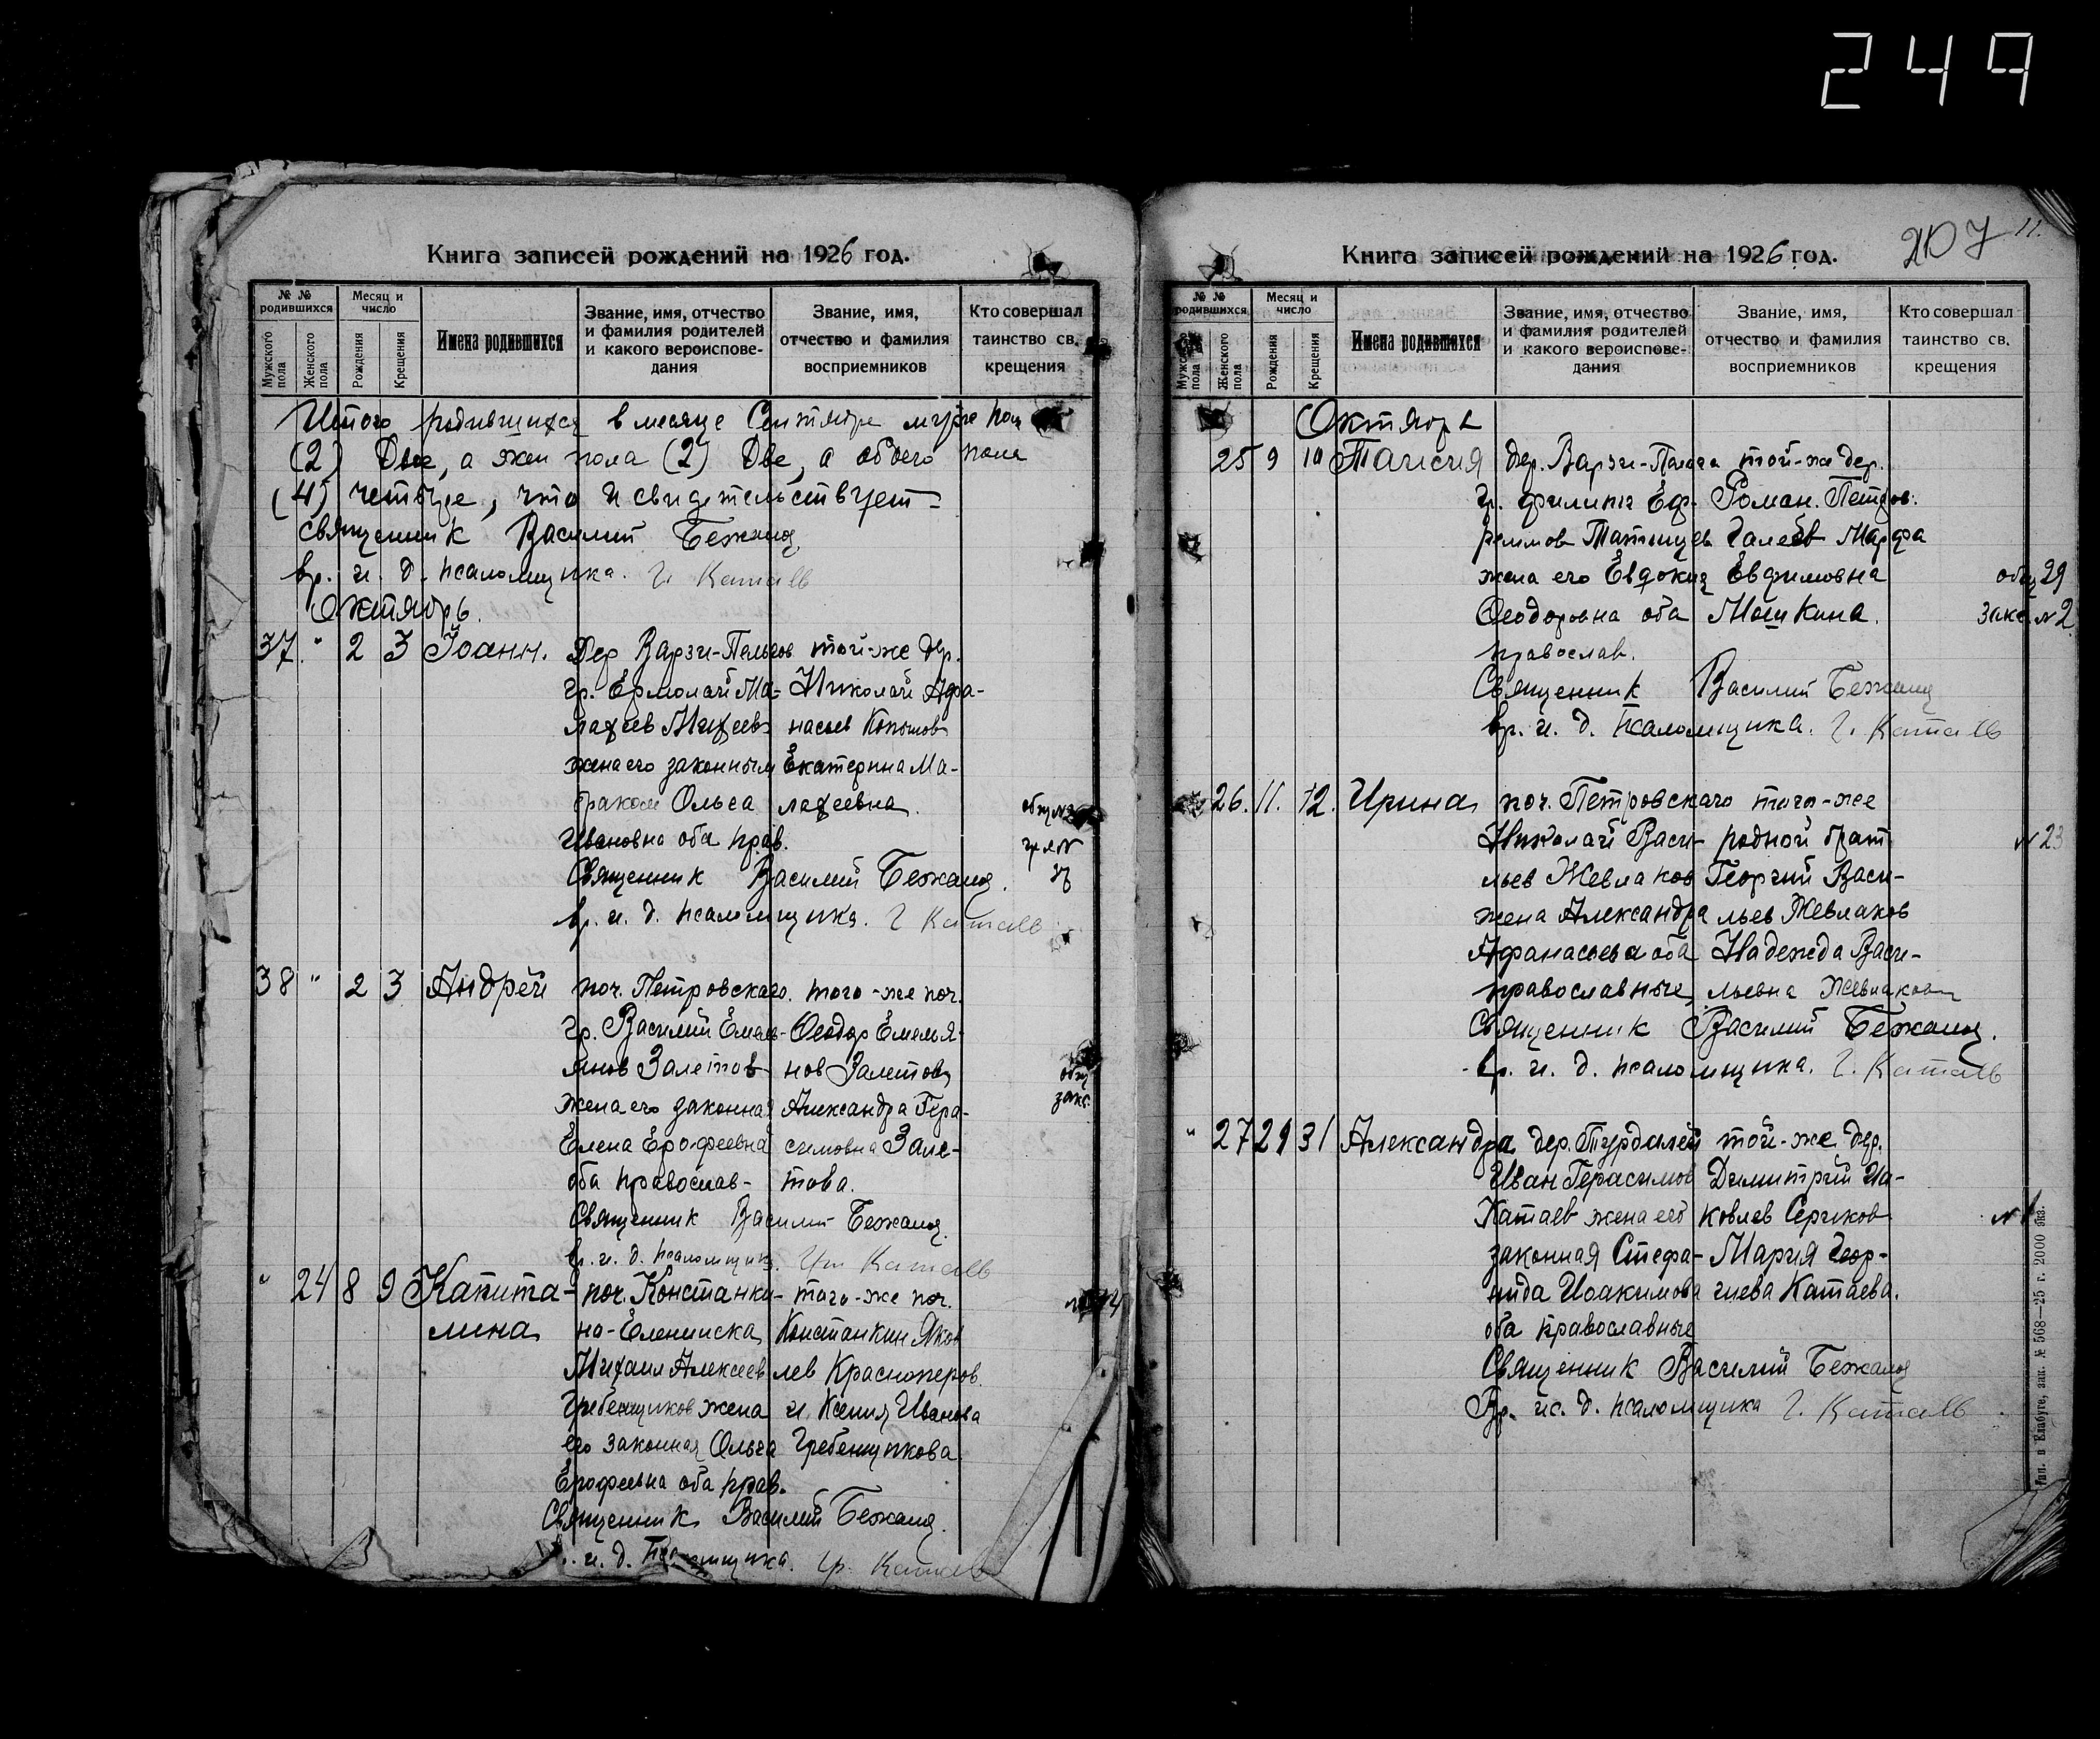 249
Книга записей рождений на 1926 год.
№ № родившихся
Мужского пола
Женского пола
Месяц и число
Рождения
Крещения
Имена родившихся
Звание, имя, отчество и фамилия родителей и какого вероисповедания
Звание, имя, отчество и фамилия восприемников
Кто совершал таинство св. крещения
Итого родившихся в месяце Сентябре
(2) Двое, а жен пола (2) Две, а обоего пола
(4) четыре, что и свидетельствует
Священник Василий
вр. и. д. псаломщика. Г. Катаев
Октябрь.
37 " 2 3 Іоанн. Дер Варзи-Пельгов той-же дер.
гр. Ермолай Ма- Николай Афа-
лафеев Михеев насьев
жена его законным Екатерина Ма-
браком Ольга лафеевна.
Ивановна оба прав.
Священник Василий
вр. и. д. псаломщика. Г Катаев
38 " 2 3 Андрей поч. Петровскаго. того-же поч.
гр. Василий Емель- Феодор Емелья-
янов Залетов нов Залетов
жена его законная Александра Гера-
Елена Ерофеевна симовна Зале-
оба православ- това.
Священник Василий
вр. и. д. псаломщик. Катаев
" 24 8 9 Капита- поч. Констанки- того-же поч.
лина но-Еленинска Констанкин Яков
Михаил Алексеев лев Красноперов.
Гребенщиков жена и Ксения Иванова
его законная Ольга Гребенщикова
Ерофеевна оба прав.
Священник Василий
и. д. псаломщика. Гр. Катаев
207
11.
Книга записей рождений на 1926 год.
№ № родившихся
Мужского пола
Женского пола
Месяц и число
Рождения
Крещения
Имена родившихся
Звание, имя, отчество и фамилия родителей и какого вероисповедания
Звание, имя, отчество и фамилия восприемников
Кто совершал таинство св. крещения
Октябрь
25 9 10 Таисия дер. Варзи-Пельга той-же дер.
гр. Филипп Еф- Роман. Петров.
ремов Татьицев Галеев Марфа
жена его Евдокия Евфимовна
Феодоровна оба Мошкина.
православ.
Священник Василий
вр. и. д. псаломщика. Г. Катаев
26. 11. 12. Ирина поч. Петровскаго того-же
Николай Васи- родной брат № 23
льев Жевлаков Георгий Васи-
жена Александра льев Жевлаков
Афанасьева оба Надежда Васи-
православные льевна Жевлакова
Священник Василий
вр. и. д. псаломщика. Г. Катаев
" 27 29 31 Александра дер. Турдалей той-же дер.
Иван Герасимов Димитрий Иа-
Катаев жена его ковлев Сериков
законная Стефа- Мария Геор-
нида Иоакимова гиева Катаева.
оба православные
Священник Василий
Вр. ис. д. псаломщика Г. Катаев
Тип. в Елабуге, зак. № 568—25 г. 2000 экз.